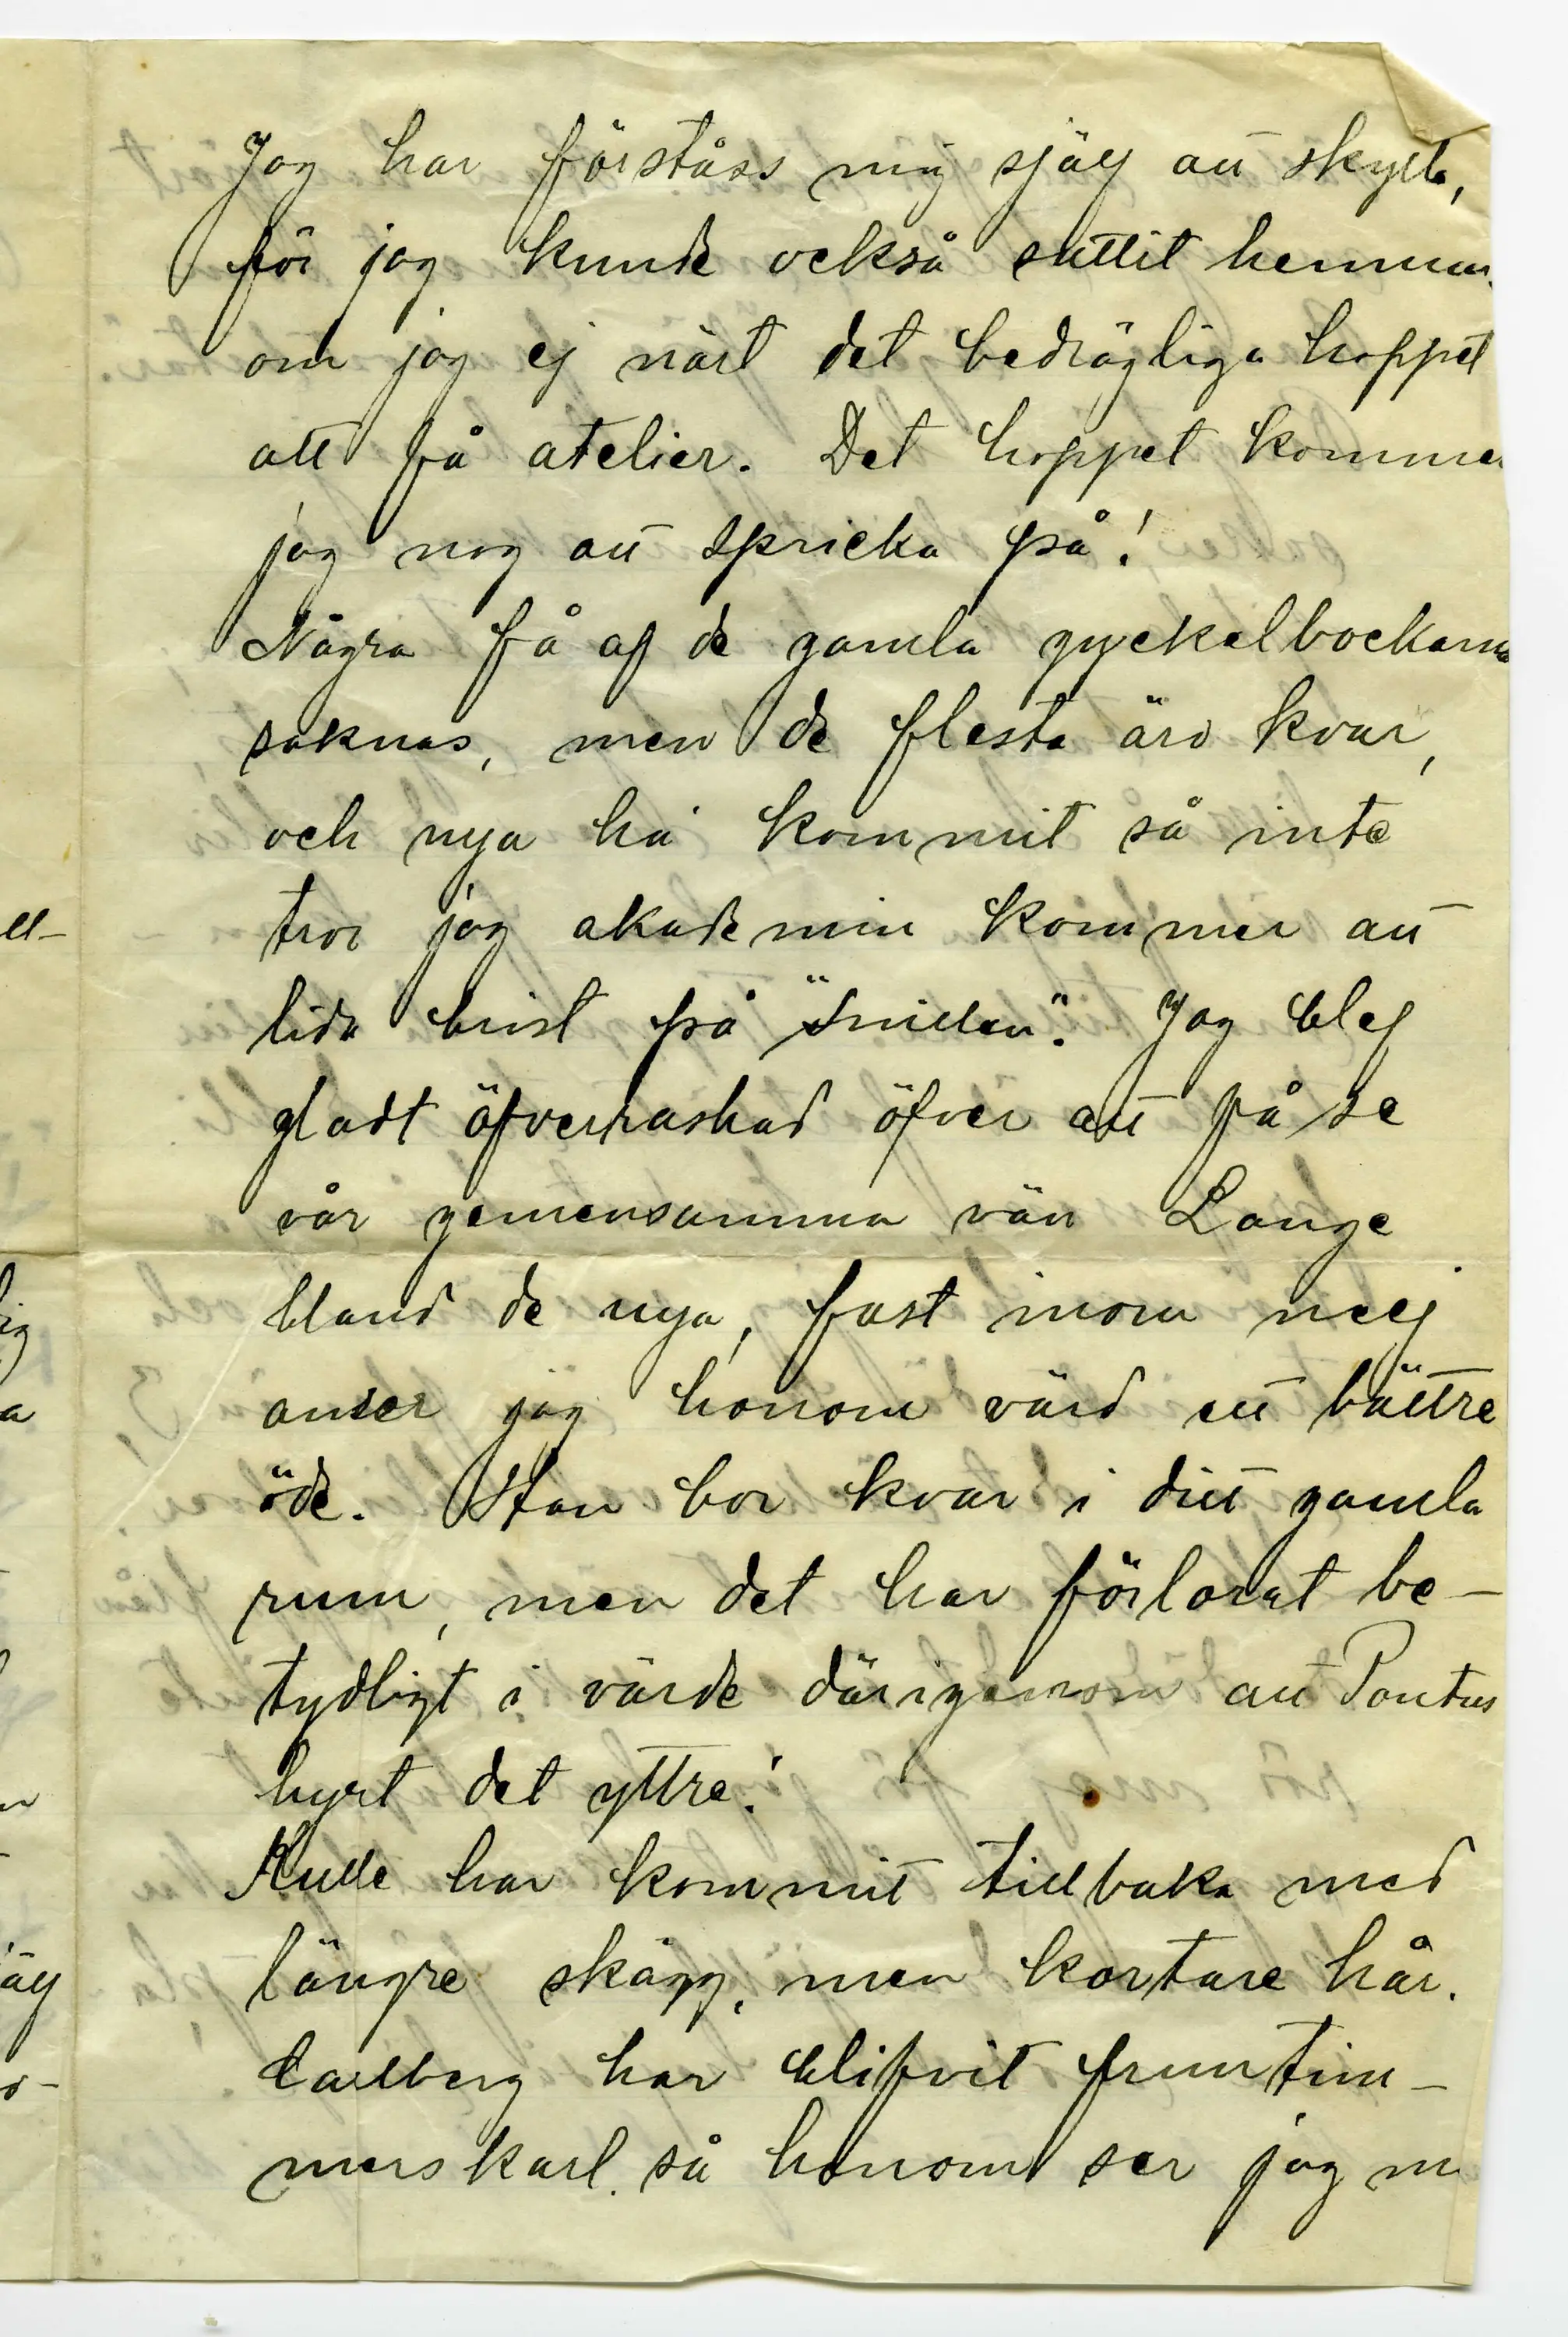 Jag har förståss mig själf att skylla,
för jag kunde också suttit hemma
om jag ej närt det bedrägliga hoppet
att få atelier. Det hoppet kommer
jag nog att spricka på!
Några få af de gamla gyckelbockarna
saknas, men de flesta äro kvar,
och nya ha kommit så inte
tror jag akademin kommer att
lida brist på "snillen". Jag blef
gladt öfverraskad öfver att få se
vår gemensamma vän Lange
bland de nya, fast inom mej
anser jag honom värd ett bättre
öde. Han bor kvar i ditt gamla
rum, men det har förlorat be-
tydligt i värde därigenom att Pontus
hyrt det yttre!
Kulle har kommit tillbaka med
längre skägg, men kortare hår.
Carlberg har blifvit fruntim-
merskarl. så honom ser jag